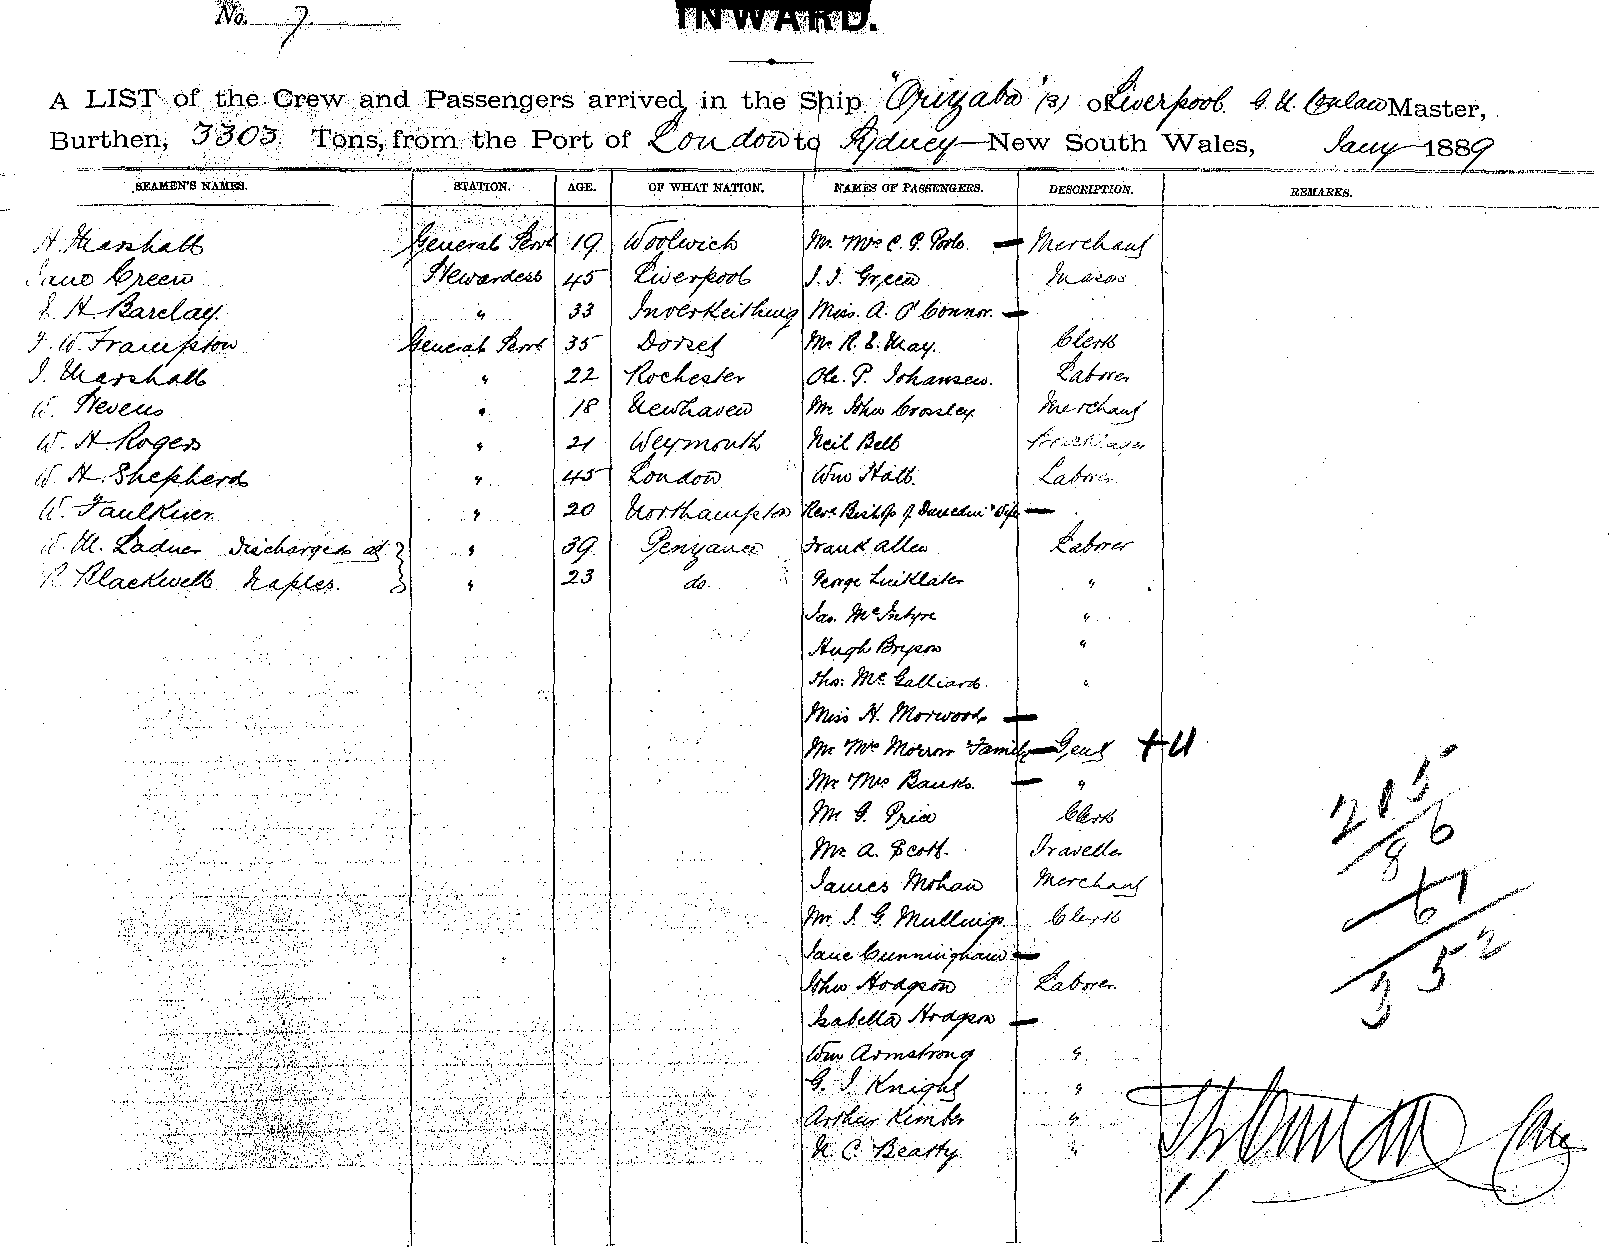 No. 7
INWARD.
A LIST of the Crew and Passengers arrived in the Ship "Orizaba" (s) of Liverpool. G. N. Conlan Master,
Burthen, 3303 Tons, from the Port of London to Sydney—New South Wales, Jany 1889
SEAMEN'S NAMES. STATION. AGE. OF WHAT NATION. NAMES OF PASSENGERS. DESCRIPTION. REMARKS.
H. Marshall General Servt 19 Woolwich Mr. Mrs C. G. — Merchant
Jane Green Stewardess 45 Liverpool J. J. Green Mason
J. H. Barclay " 33 Inverkeithing Miss. A. O'Connor. —
F. W. Frampton General Servt 35 Dorset Mr R. E. May. Clerk
J. Marshall " 22 Rochester Ole. P. Johansen. Laborer
W. Stevens " 18 Newhaven Mr John Crossley Merchant
W. H. Rogers " 21 Weymouth Neil Bell
W. H. Shepherd " 45 London Wm Hall. Laborer
W. Faulkner " 20 Northampton Revd Bishop of Dunedin " Wife —
W. M. Ladner Discharged at " 39 Penzance Frank Allen Laborer
R. Blackwell Naples. " 23 do. George Linklater "
Jas. McIntyre "
Hugh Bryson "
Thos. McGalliard. "
Miss H. Morwood —
Mr Mrs Morrow Family — Gent + 4
Mr Mrs Banks. — "
Mr G. Price Clerk
Mr. A. Scott. Traveller
James Mohan Merchant
Mr. J. G. Mullings. Clerk
Jane Cunningham —
John Hodgson Laborer
Isabella Hodgson —
Wm Armstrong "
G. J. Knight "
Arthur Kimber "
N. C. Beatty "
215
86
67
352